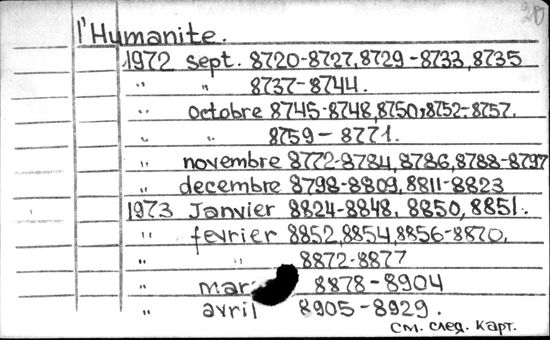 20
l'Humanite.
1972 sept. 8720-8727,8729-8733,8735
" " 8737-8744.
" octobre 8745-8748,8750,8752-8757.
" " 8759-8771.
" novembre 8772-8784,8786,8788-8797
" decembre 8798-8809,8811-8823
1973 Janvier 8824-8848. 8850, 8851.
" fevrier 8852,8854,8856-8870,
" " 8872-8877
" mar 8878-8904
" avril 8905-8929.
см. след. карт.